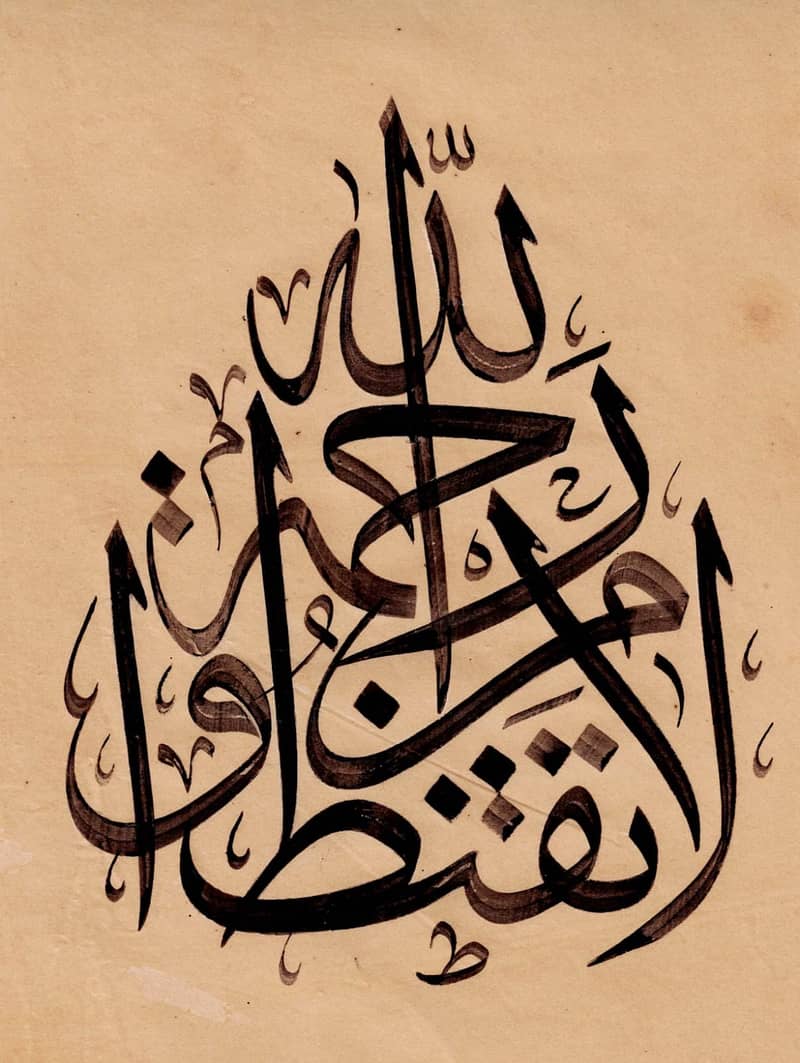 لا تقنطوا
من رحمة
الله